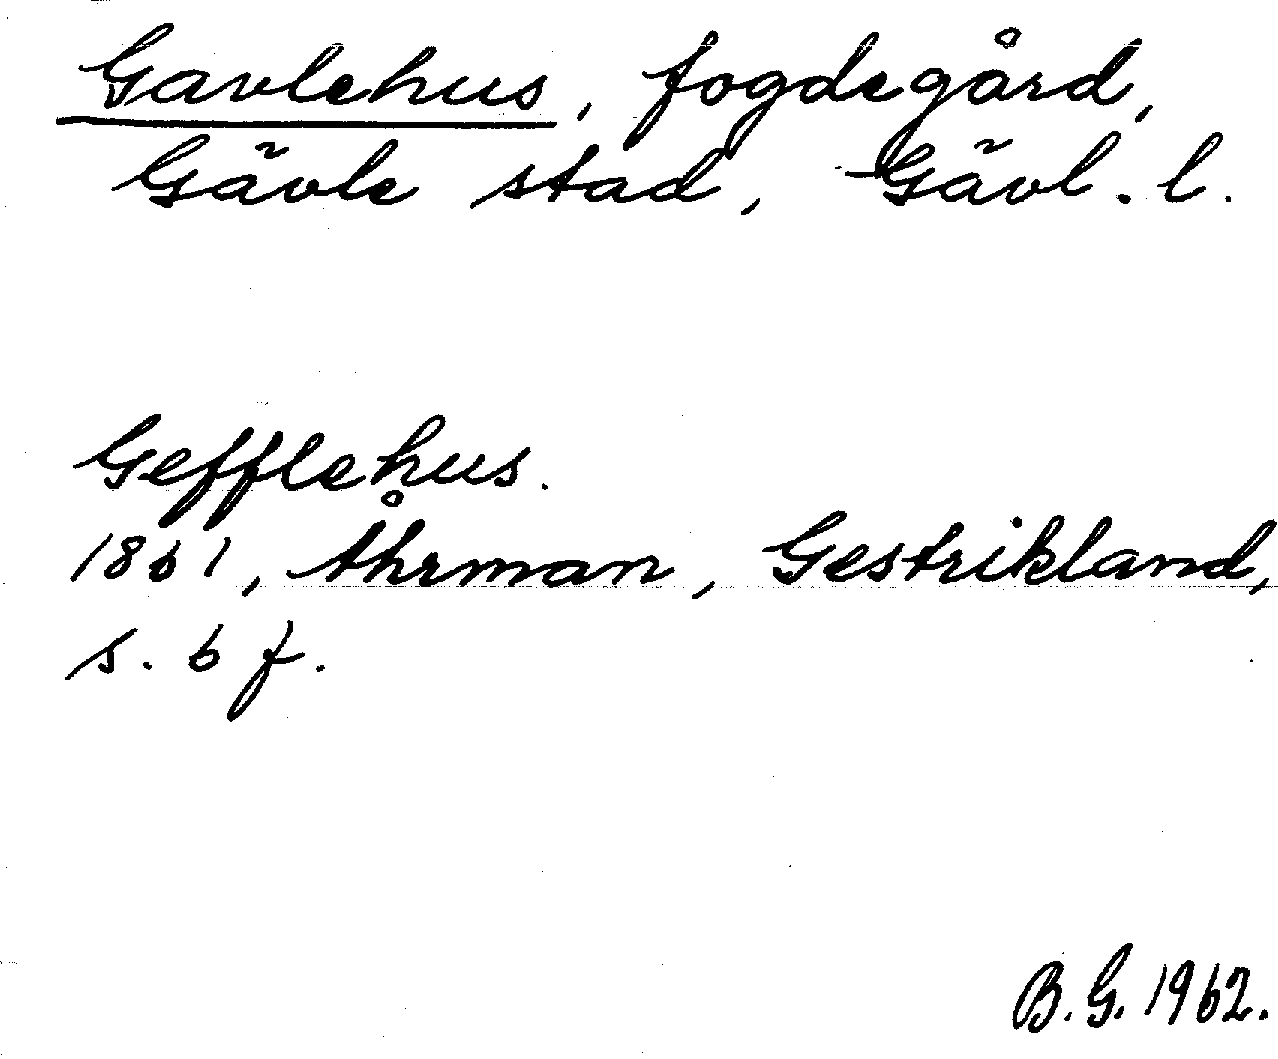 Gavlehus, fogdegård,
Gävle stad, Gävl. l.
Gefflehus.
1861, Åhrman, Gestrikland,
s. 6 f.
B.G. 1962.